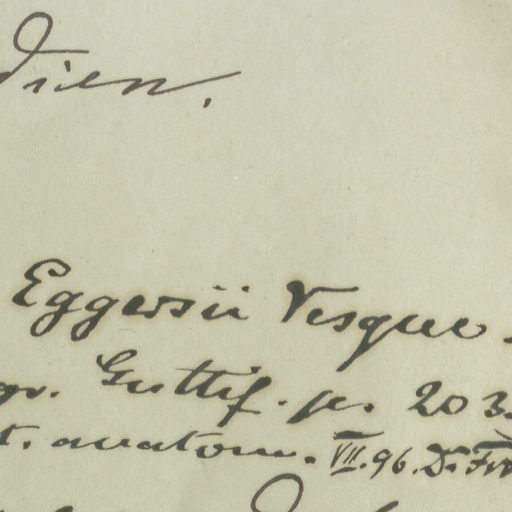 dien.
Eggersii Vesque.
gr. Guttif. p. 203.
t. anatom. VII. 96. Dr. Fr